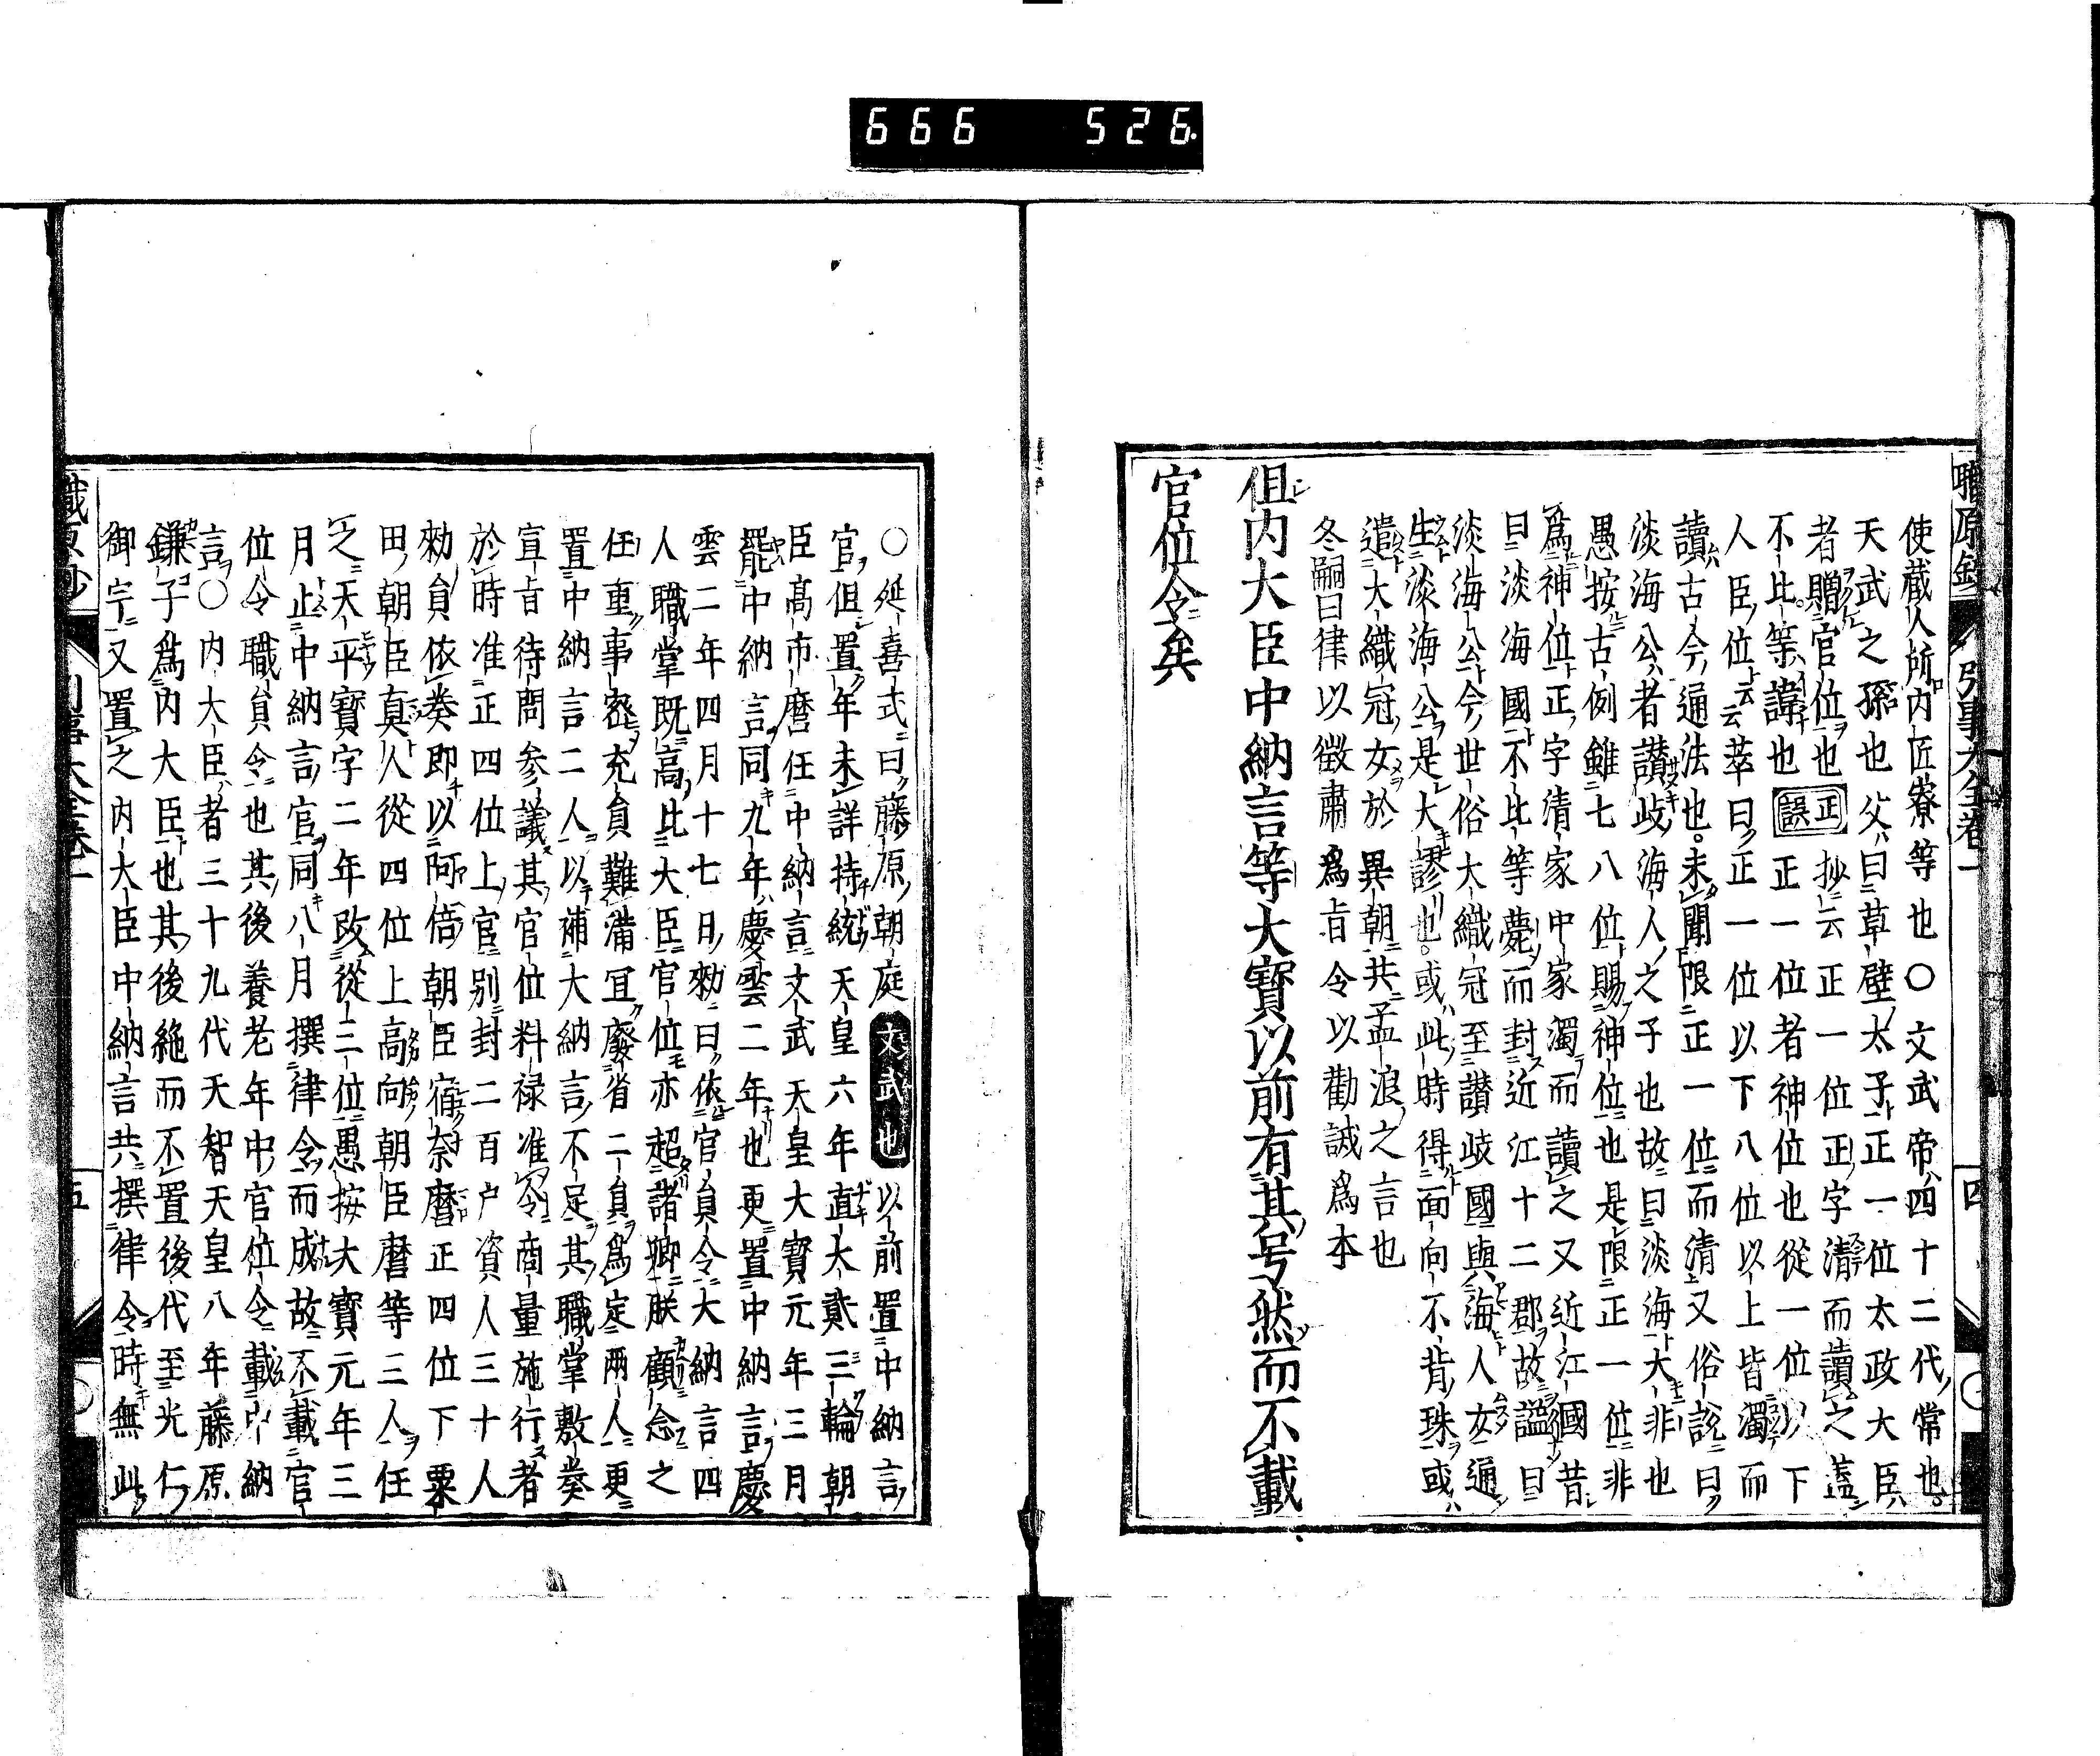 666 526.
職原鈔 引事大全卷一 四
使蔵人所内匠寮等也〇文武帝四十二代常也
天武之孫也父曰草壁太子正一位太政大臣
者贈官位也正抄云正一位正字清而讀之蓋
不比等諱也誤正一位者神位也從一位以下
人臣位云云萃曰正一位以下八位以上皆濁而
讀古今通法也未聞限正一位而清又俗說曰
淡海公者讃歧海人之子也故曰淡海大非也
愚按古例雖七八位賜神位也是限正一位非
為神位正字清家中家濁而讀之又近江國昔
曰淡海國不比等薨而封近江十二郡故謚曰
淡海公今世俗大織冠至讃歧國與海人女通
生淡海公是大謬也或此時得面向不背珠或
遣大織冠女於異朝共孟浪之言也
冬嗣曰律以徵肅爲旨令以勸誡爲本
但内大臣中納言等大寶以前有其号然而不載
官位令矣
〇延喜式曰藤原朝庭文武也以前置中納言
官但置年未詳持統天皇六年直大貳三輪朝
臣高市麿任中納言文武天皇大寶元年三月
罷中納言同九年慶雲二年也更置中納言慶
雲二年四月十七日勅曰依官員令大納言四
人職掌既高比大臣官位亦超諸卿朕顧念之
任重事密充員難滿宜廢省二員爲定兩人更
置中納言二人以補大納言不足其職掌敷奏
宣旨待問参議其官位料禄准令商量施行者
於時准正四位上官别封二百户資人三十人
勅員依奏即以阿倍朝臣宿奈麿正四位下粟
田朝臣真人從四位上高向朝臣麿等三人任
之天平寶字二年改從三位愚按大寶元年三
月止中納言官同八月撰律令而成故不載官
位令職員令也其後養老年中官位令載中納
言〇内大臣者三十九代天智天皇八年藤原
鎌子爲内大臣也其後絶而不置後代至光仁
御宇又置之内大臣中納言共撰律令時無此
職原鈔 引事大全卷一 五